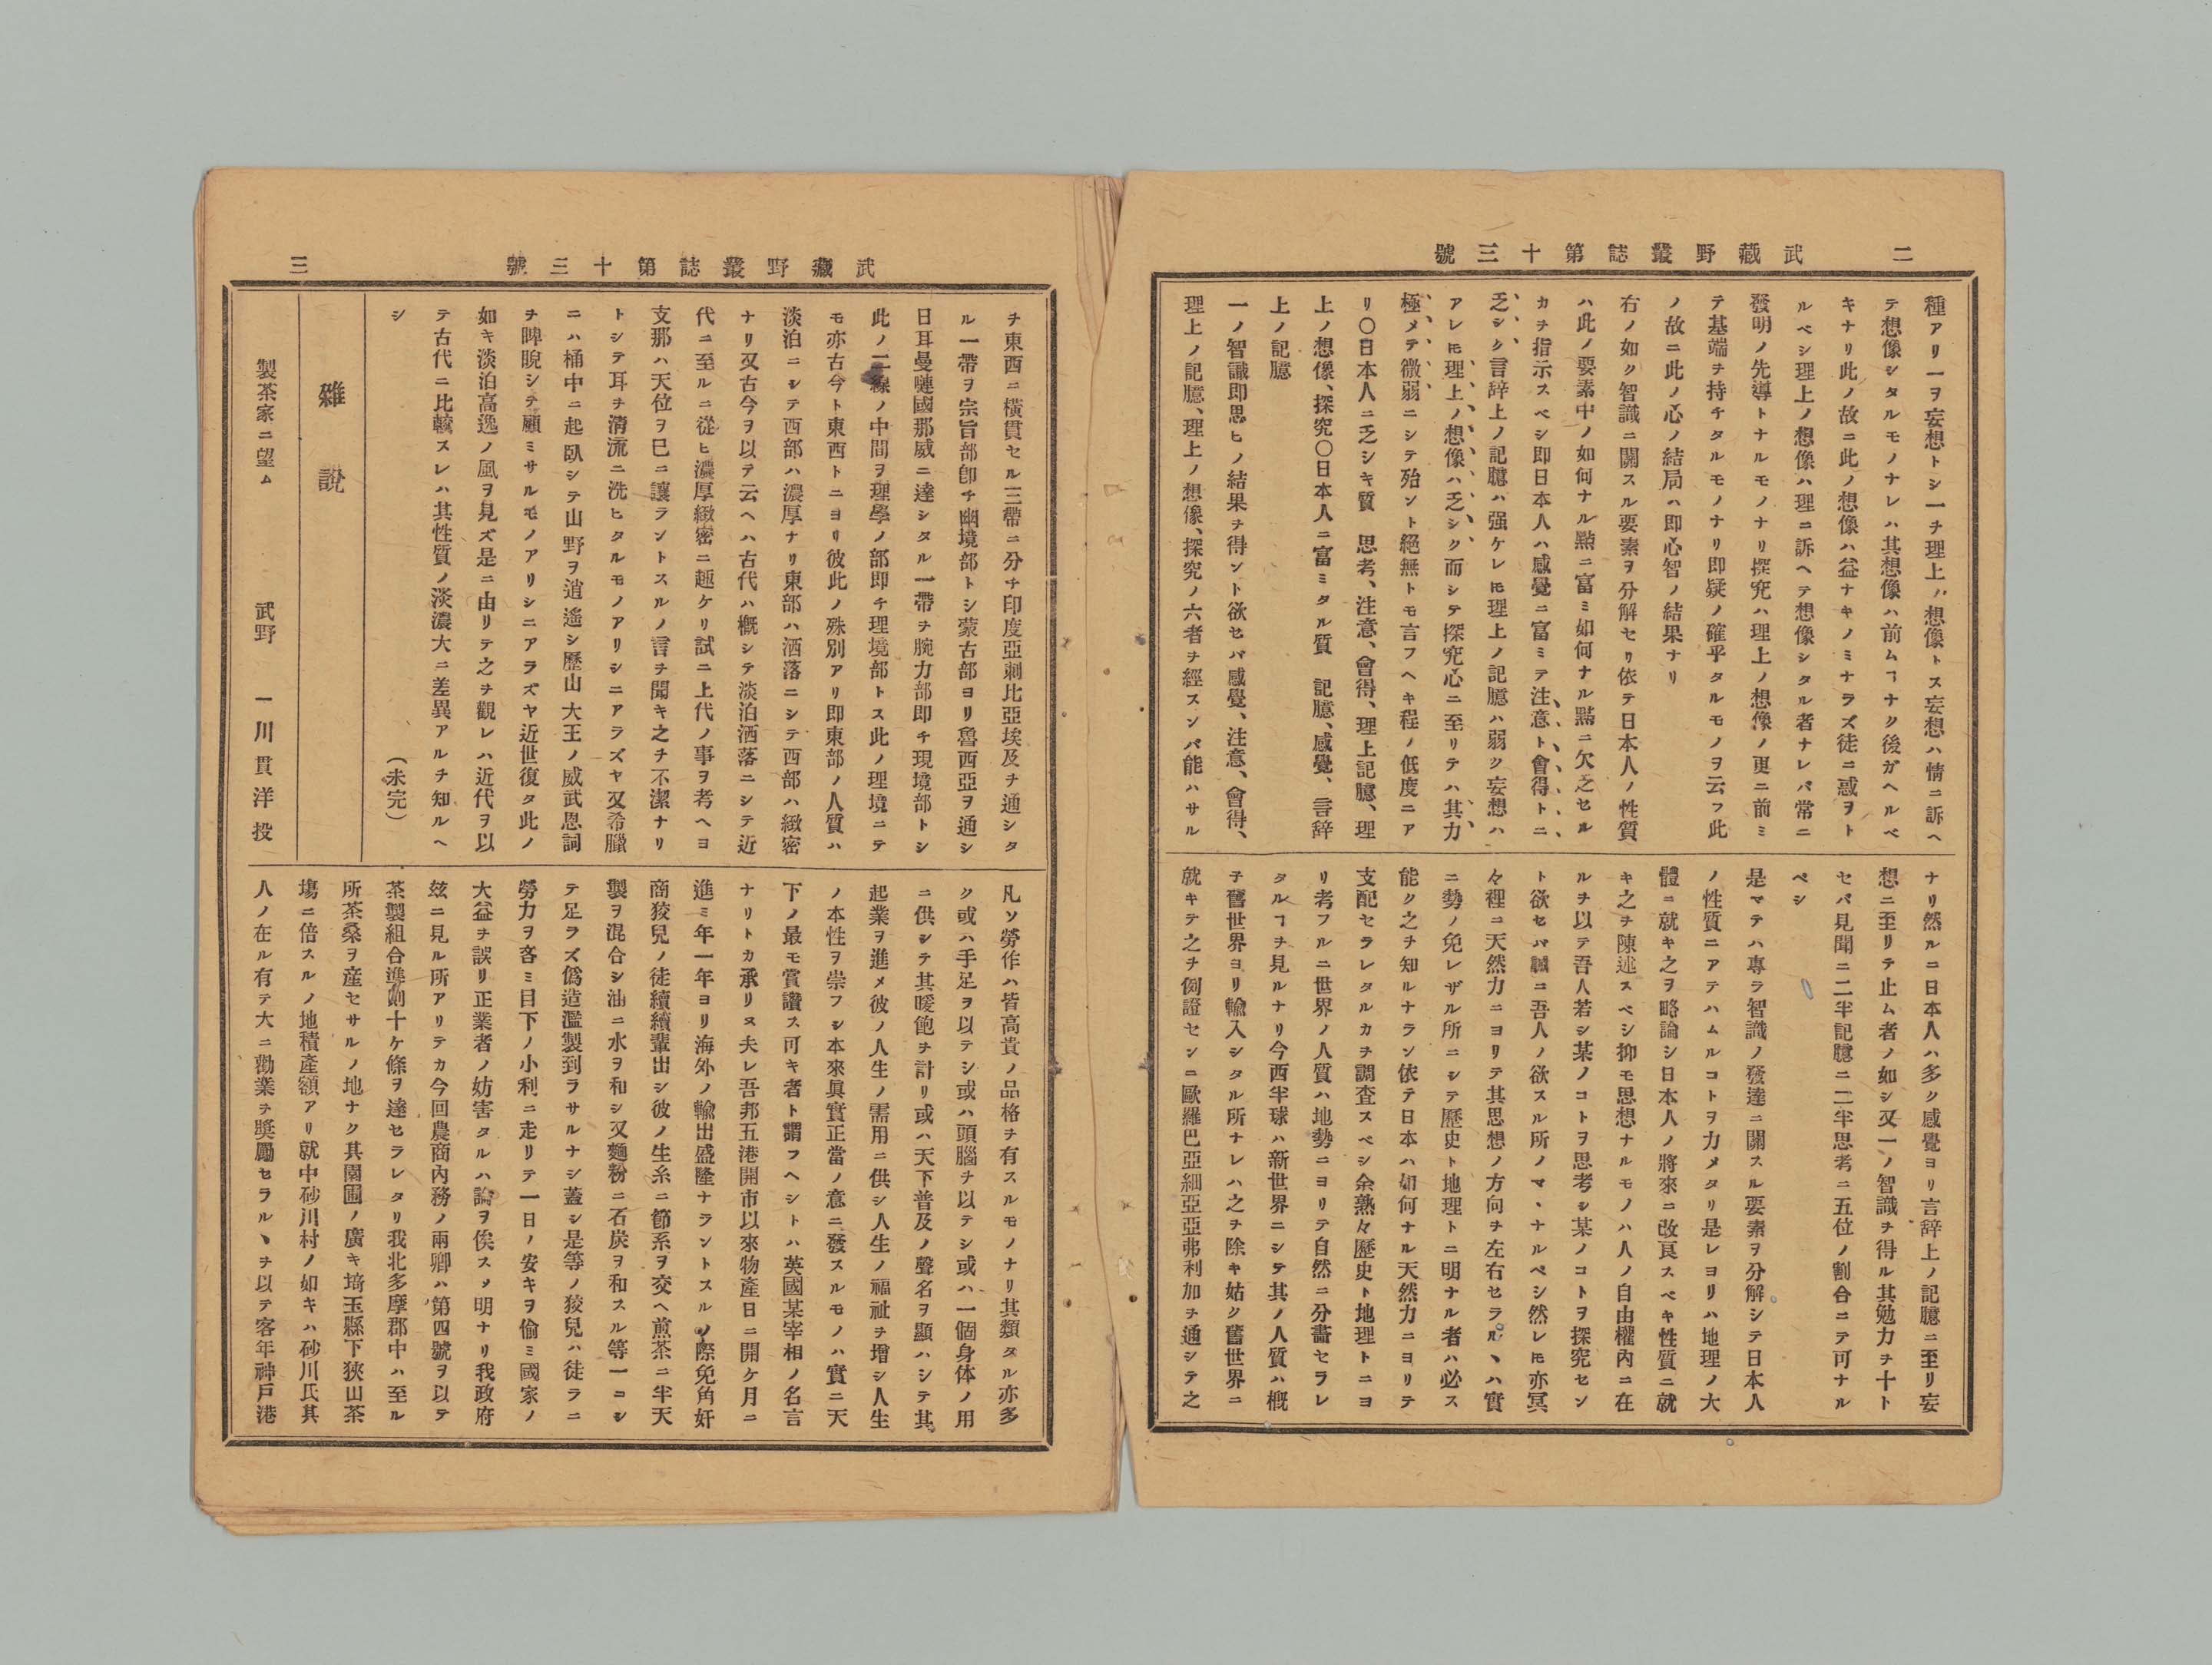 二
武藏野叢誌第十三號
種アリ一ヲ妄想トシ一チ理上ノ想像トス妄想ハ情ニ訴ヘ
テ想像シタルモノナレハ其想像ハ前ムヿナク後ガヘルベ
キナリ此ノ故ニ此ノ想像ハ益ナキノミナラズ徒ニ惑ヲト
ルベシ理上ノ想像ハ理ニ訴ヘテ想像シタル者ナレバ常ニ
發明ノ先導トナルモノナリ撰究ハ理上ノ想像ノ更ニ前ミ
テ基端チ持チタルモノナリ即疑ノ確乎タルモノヲ云フ此
ノ故ニ此ノ心ノ結局ハ即心智ノ結果ナリ
右ノ如ク智識ニ關スル要素ヲ分解セリ依テ日本人ノ性質
ハ此ノ要素中ノ如何ナル點ニ富ミ如何ナル點ニ欠乏セル
カチ指示スベシ即日本人ハ感覺ニ富ミテ注意ト會得トニ
乏シク言辞上ノ記臆ハ强ケレモ理上ノ記臆ハ弱ク妄想ハ
アレモ理上ノ想像ハ乏シク而シテ探究心ニ至リテハ其力
極メテ微弱ニシテ殆ント絕無トモ言フヘキ程ノ低度ニア
リ〇日本人ニ乏シキ質　思考、注意、會得、理上記臆、理
上ノ想像、探究〇日本人ニ富ミタル質　記臆、感覺、言辞
上ノ記臆
一ノ智識即思ヒノ結果チ得ント欲セバ感覺、注意、會得、
理上ノ記臆、理上ノ想像、探究ノ六者チ經スンバ能ハサル
ナリ然ルニ日本人ハ多ク感覺ヨリ言辞上ノ記臆ニ至リ妄
想ニ至リテ止ム者ノ如シ又一ノ智識チ得ル其勉力チ十ト
セバ見聞ニ二半記臆ニ二半思考ニ五位ノ割合ニテ可ナル
ベシ
是マテハ專ラ智識ノ發達ニ關スル要素ヲ分解シテ日本人
ノ性質ニアテハムルコトヲ力メタリ是レヨリハ地理ノ大
體ニ就キ之ヲ略論シ日本人ノ將來ニ改良スベキ性質ニ就
キ之チ陳述スベシ抑モ思想ナルモノハ人ノ自由權內ニ在
ルチ以テ吾人若シ某ノコトヲ思考シ某ノコトヲ探究セン
ト欲セバ誠ニ吾人ノ欲スル所ノマヽナルベシ然レモ亦冥
々裡ニ天然力ニヨリテ其思想ノ方向チ左右セラルヽハ實
ニ勢ノ免レザル所ニシテ歷史ト地理トニ明ナル者ハ必ス
能ク之チ知ルナラン依テ日本ハ如何ナル天然力ニヨリテ
支配セラレタルカチ調査スベシ余熟々歷史ト地理トニヨ
リ考フルニ世界ノ人質ハ地勢ニヨリテ自然ニ分畵セラレ
タルヿチ見ルナリ今西半球ハ新世界ニシテ其ノ人質ハ槪
子舊世界ヨリ輸入シタル所ナレハ之チ除キ姑ク舊世界ニ
就キテ之チ例證センニ歐羅巴亞細亞亞弗利加チ通シテ之
三
武藏野叢誌第十三號
チ東西ニ橫貫セル三帶ニ分チ印度亞刺比亞埃及チ通シタ
ル一帶ヲ宗旨部卽チ幽境部トシ蒙古部ヨリ魯西亞ヲ通シ
日耳曼嗹國那威ニ達シタル一帶チ腕力部即チ現境部トシ
此ノ二線ノ中間ヲ理學ノ部即チ理境部トス此ノ理境ニテ
モ亦古今ト東西トニヨリ彼此ノ殊別アリ即東部ノ人質ハ
淡泊ニシテ西部ハ濃厚ナリ東部ハ洒落ニシテ西部ハ緻密
ナリ又古今ヲ以テ云ヘハ古代ハ槪シテ淡泊洒落ニシテ近
代ニ至ルニ從ヒ濃厚緻密ニ趣ケリ試ニ上代ノ事ヲ考ヘヨ
支那ハ天位ヲ巳ニ讓ラントスルノ言チ聞キ之チ不潔ナリ
トシテ耳チ淸流ニ洗ヒタルモノアリシニアラズヤ又希臘
ニハ桶中ニ起臥シテ山野ヲ逍遙シ歷山大王ノ威武恩詞
チ睥睨シテ顧ミサルモノアリシニアラズヤ近世復タ此ノ
如キ淡泊高逸ノ風ヲ見ズ是ニ由リテ之チ觀レハ近代ヲ以
テ古代ニ比較スレハ其性質ノ淡濃大ニ差異アルチ知ルヘ
シ
（未完）
雜說
製茶家ニ望ム　武野　一川貫洋投
凡ソ勞作ハ皆高貴ノ品格チ有スルモノナリ其類タル亦多
ク或ハ手足ヲ以テシ或ハ頭腦チ以テシ或ハ一個身体ノ用
ニ供シテ其暖飽チ計リ或ハ天下普及ノ聲名ヲ顯ハシテ其
起業ヲ進メ彼ノ人生ノ需用ニ供シ人生ノ福祉チ增シ人生
ノ本性ヲ崇フシ本來眞實正當ノ意ニ發スルモノハ實ニ天
下ノ最モ賞讃ス可キ者ト謂フヘシトハ英國某宰相ノ名言
ナリトカ承リヌ夫レ吾邦五港開市以來物產日ニ開ケ月ニ
進ミ年一年ヨリ海外ノ輸出盛隆ナラントスルノ際免角奸
商狡兒ノ徒續續輩出シ彼ノ生糸ニ節糸ヲ交ヘ煎茶ニ半天
製ヲ混合シ油ニ水ヲ和シ又麵粉ニ石炭ヲ和スル等一コシ
テ足ラズ僞造濫製到ラサルナシ蓋シ是等ノ狡兒ハ徒ラニ
勞力ヲ吝ミ目下ノ小利ニ走リテ一日ノ安キヲ偷ミ國家ノ
大益チ誤リ正業者ノ妨害タルハ論ヲ俟スメ明ナリ我政府
玆ニ見ル所アリテカ今回農商內務ノ兩卿ハ第四號ヲ以テ
茶製組合準則十ケ條ヲ達セラレタリ我北多摩郡中ハ至ル
所茶桑ヲ産セサルノ地ナク其園圃ノ廣キ埼玉縣下狹山茶
塲ニ倍スルノ地積產額アリ就中砂川村ノ如キハ砂川氏其
人ノ在ル有テ大ニ勸業チ奬勵セラルヽチ以テ客年神戶港